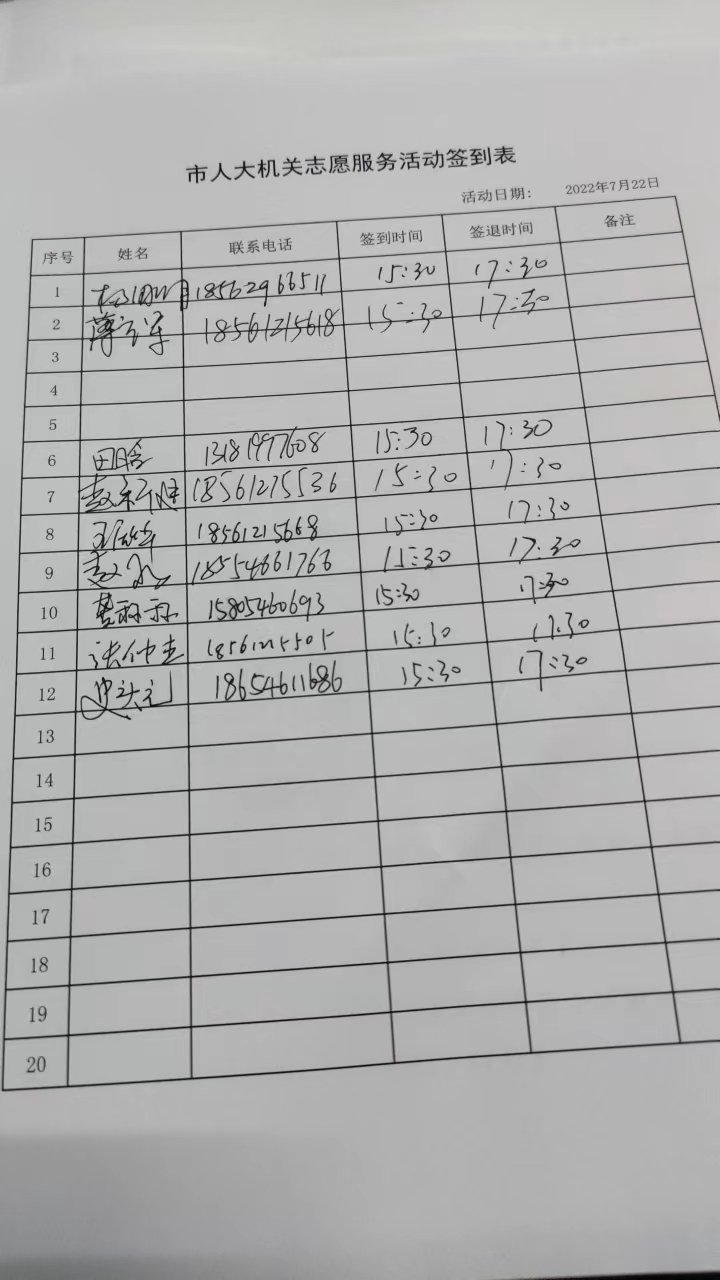 市人大机关志愿服务活动签到表
活动日期: 2022年7月22日
序号 姓名 联系电话 签到时间 签退时间 备注
1 18562966511 15:30 17:30
2 薄云军 18561215618 15:30 17:30
3
4
5
6 田晗 13181997608 15:30 17:30
7 18561215536 15:30 17:30
8 18561215668 15:30 17:30
9 18554661766 15:30 17:30
10 15805460693 15:30 17:30
11 张仲杰 18561215505 15:30 17:30
12 18654611686 15:30 17:30
13
14
15
16
17
18
19
20